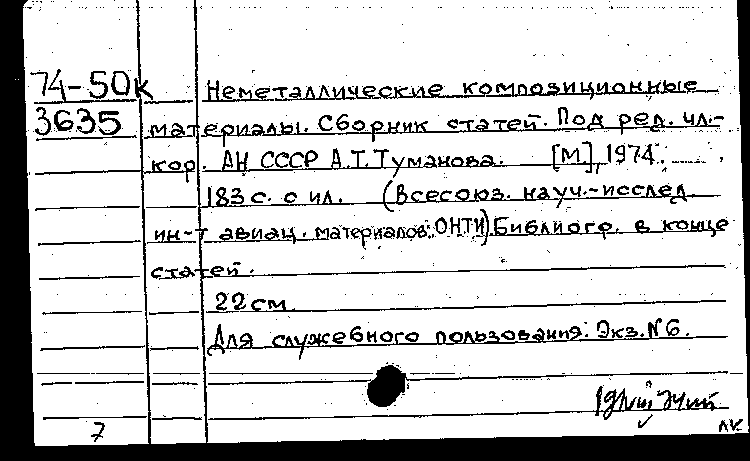 74-50к Неметаллические композиционные
3635 материалы. Сборник статей. Под ред. чл.-
кор. АН СССР А.Т. Туманова. [М], 1974.
183 с. с ил. (Всесоюз. науч.-исслед.
ин-т авиац. материалов. ОНТИ) Библиогр. в конце
статей.
22 см.
Для служебного пользования: Экз. N6.
7